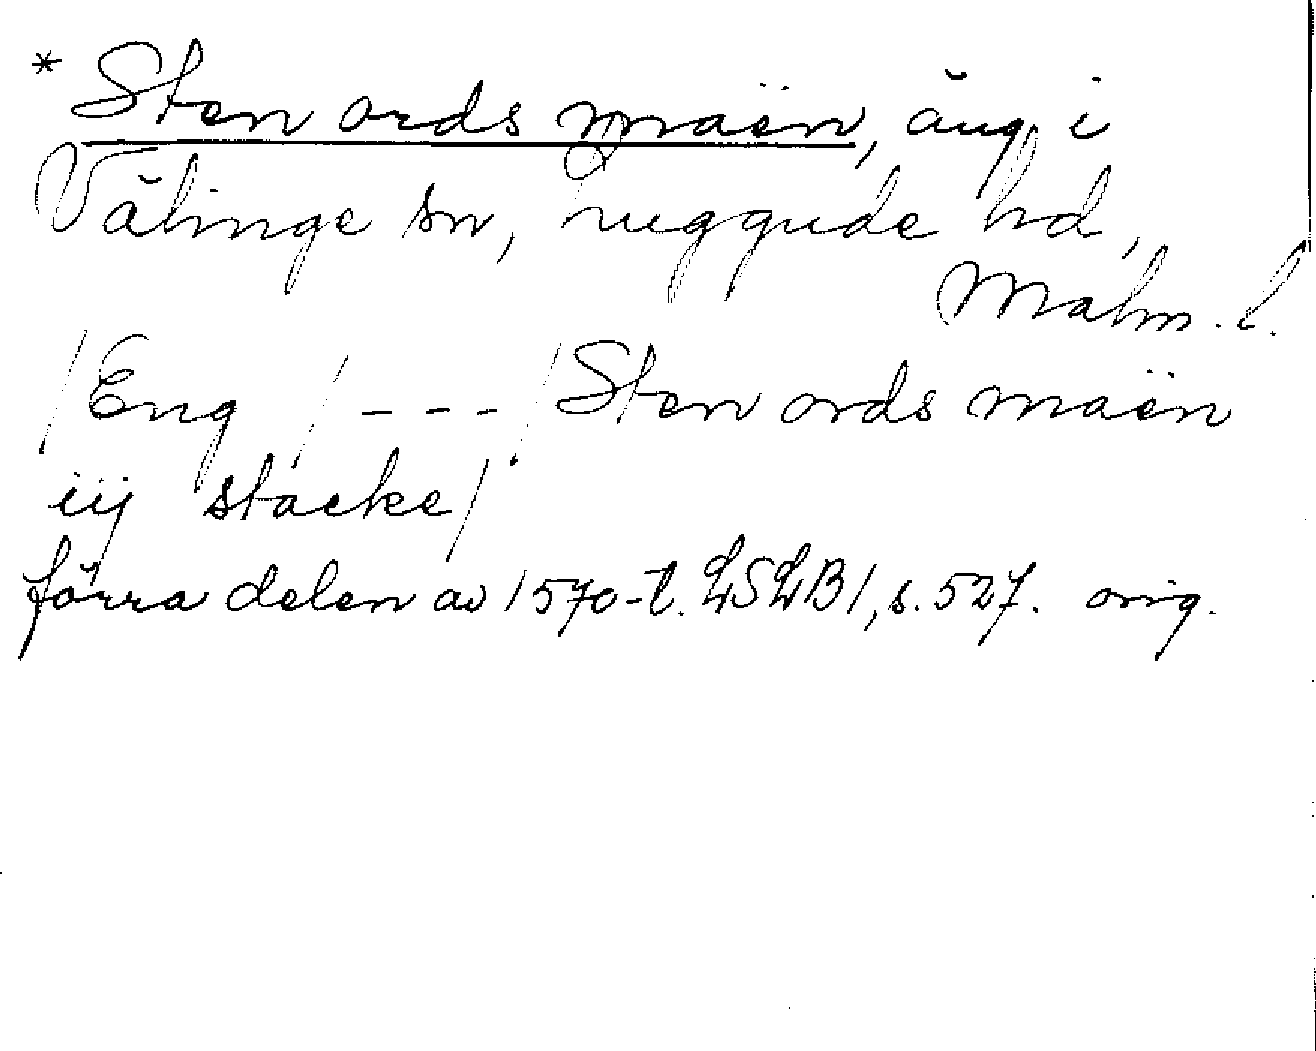 * Sten ords maën, äng i
Välinge sn, Luggude hd,
Malm. l.
/Eng / - - - / Sten ords maën
iij stacke/
förra delen av 1570-t. LSLB1, s. 527. orig.